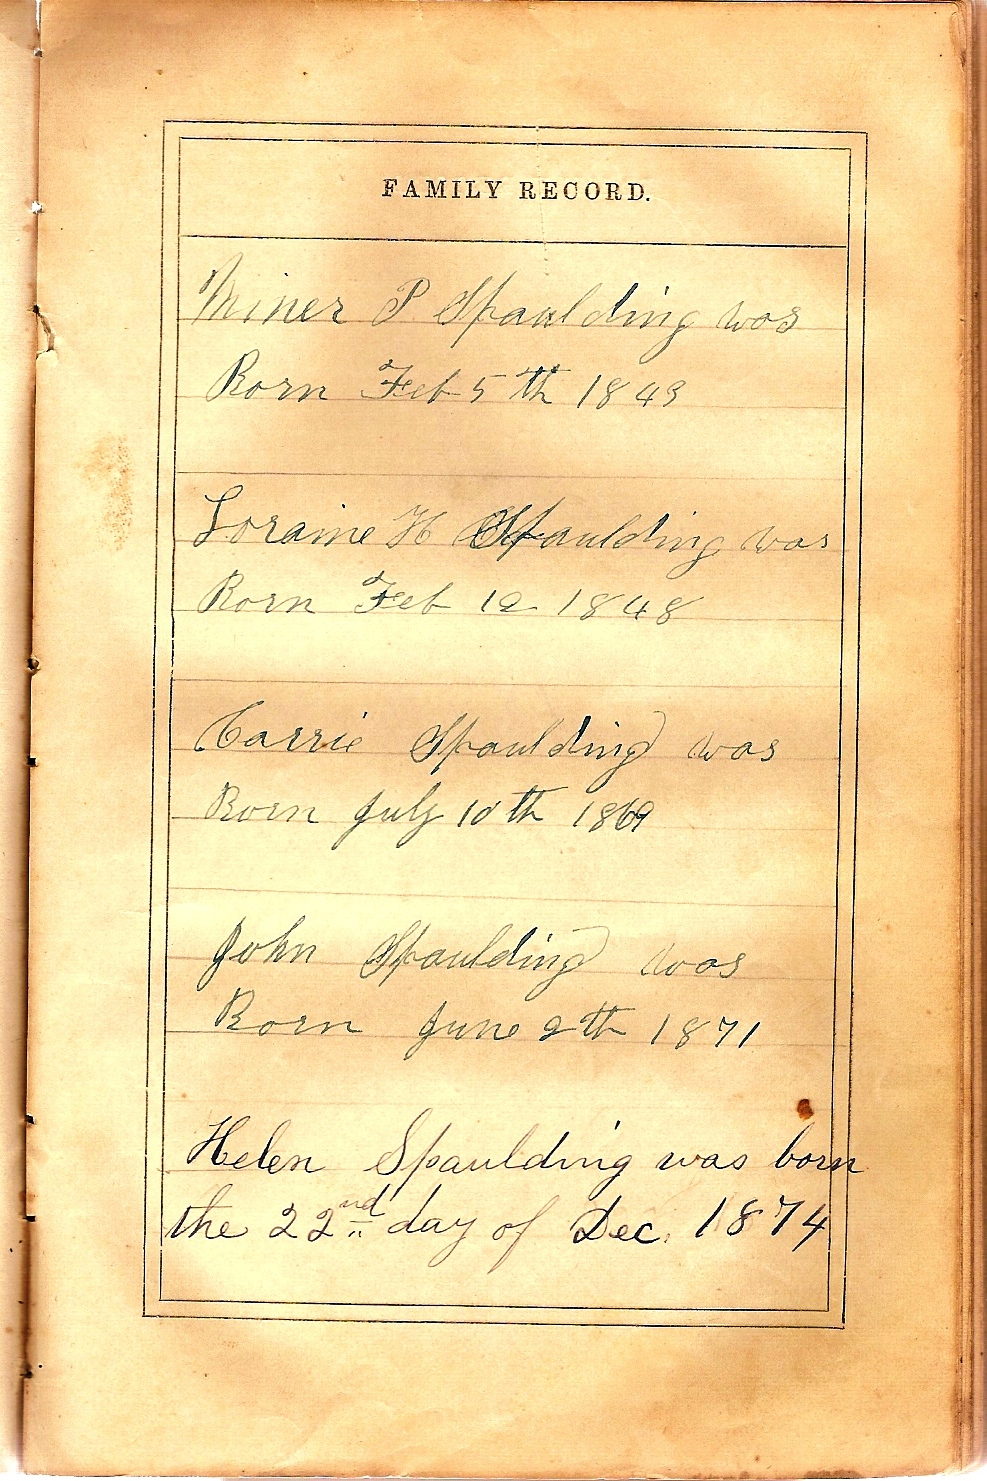 FAMILY RECORD.
Miner P Spaulding was
Born Feb 5th 1849
Loraine H Spaulding was
Born Feb 12 1848
Carrie Spaulding was
Born July 10th 1869
John Spaulding was
Born June 9th 1871
Helen Spaulding was born
the 22nd day of Dec. 1874